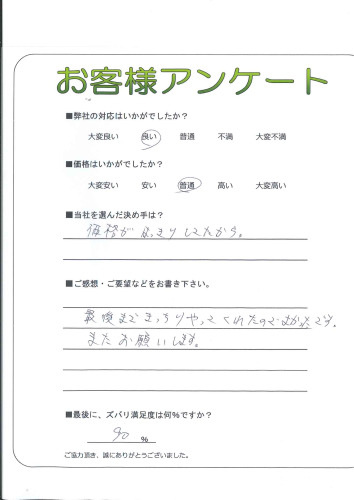 お客様アンケート
■弊社の対応はいかがでしたか？
大変良い 良い 普通 不満 大変不満
■価格はいかがでしたか？
大変安い 安い 普通 高い 大変高い
■当社を選んだ決め手は？
価格がはっきりしてたから。
■ご感想・ご要望などをお書き下さい。
最後まできっちりやってくれたのでよかったです。
またお願いします。
■最後に、ズバリ満足度は何%ですか？
90 %
ご協力頂き、誠にありがとうございました。